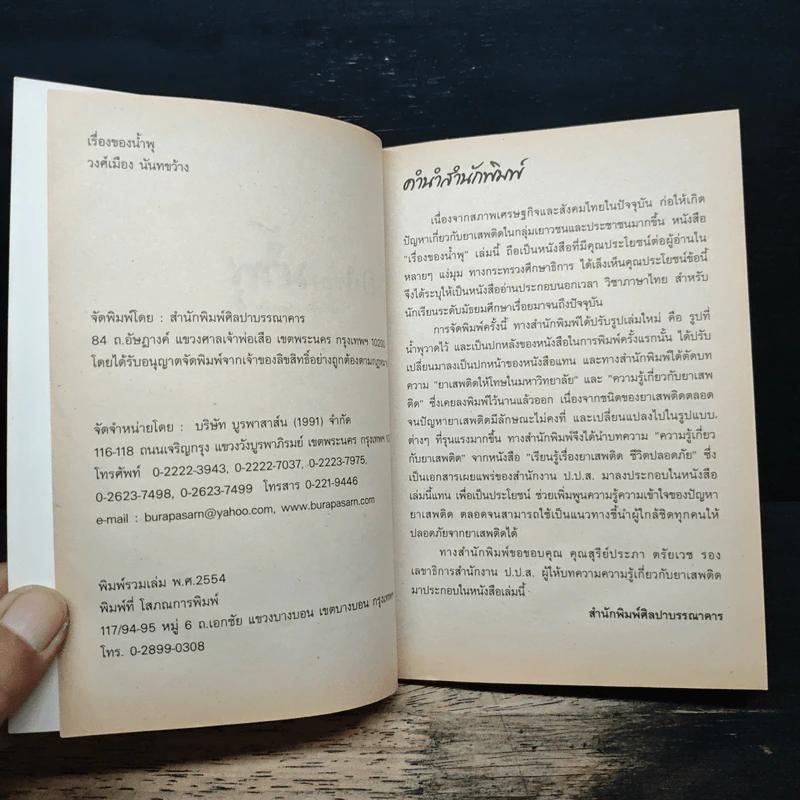 เรื่องของน้ำพุ
วงศ์เมือง นันทขว้าง
จัดพิมพ์โดย : สำนักพิมพ์ศิลปาบรรณาคาร
84 ถ.อัษฎางค์ แขวงศาลเจ้าพ่อเสือ เขตพระนคร กรุงเทพฯ 10200
โดยได้รับอนุญาตจัดพิมพ์จากเจ้าของลิขสิทธิ์อย่างถูกต้องตามกฎหมาย
จัดจำหน่ายโดย : บริษัท บูรพาสาส์น (1991) จำกัด
116-118 ถนนเจริญกรุง แขวงวังบูรพาภิรมย์ เขตพระนคร กรุงเทพฯ
โทรศัพท์ 0-2222-3943, 0-2222-7037, 0-2223-7975,
0-2623-7498, 0-2623-7499 โทรสาร 0-221-9446
e-mail : burapasarn@yahoo.com, www.burapasarn.com
พิมพ์รวมเล่ม พ.ศ.2554
พิมพ์ที่ โสภณการพิมพ์
117/94-95 หมู่ 6 ถ.เอกชัย แขวงบางบอน เขตบางบอน กรุงเทพฯ
โทร. 0-2899-0308
คำนำสำนักพิมพ์
เนื่องจากสภาพเศรษฐกิจและสังคมไทยในปัจจุบัน ก่อให้เกิด
ปัญหาเกี่ยวกับยาเสพติดในกลุ่มเยาวชนและประชาชนมากขึ้น หนังสือ
"เรื่องของน้ำพุ" เล่มนี้ ถือเป็นหนังสือที่มีคุณประโยชน์ต่อผู้อ่านใน
หลายๆ แง่มุม ทางกระทรวงศึกษาธิการ ได้เล็งเห็นคุณประโยชน์ข้อนี้
จึงได้ระบุให้เป็นหนังสืออ่านประกอบนอกเวลา วิชาภาษาไทย สำหรับ
นักเรียนระดับมัธยมศึกษาเรื่อยมาจนถึงปัจจุบัน
การจัดพิมพ์ครั้งนี้ ทางสำนักพิมพ์ได้ปรับรูปเล่มใหม่ คือ รูปที่
น้ำพุวาดไว้ และเป็นปกหลังของหนังสือในการพิมพ์ครั้งแรกนั้น ได้ปรับ
เปลี่ยนมาลงเป็นปกหน้าของหนังสือแทน และทางสำนักพิมพ์ได้ตัดบท
ความ "ยาเสพติดให้โทษในมหาวิทยาลัย" และ "ความรู้เกี่ยวกับยาเสพ
ติด" ซึ่งเคยลงพิมพ์ไว้นานแล้วออก เนื่องจากชนิดของยาเสพติดตลอด
จนปัญหายาเสพติดมีลักษณะไม่คงที่ และเปลี่ยนแปลงไปในรูปแบบ
ต่างๆ ที่รุนแรงมากขึ้น ทางสำนักพิมพ์จึงได้นำบทความ "ความรู้เกี่ยว
กับยาเสพติด" จากหนังสือ "เรียนรู้เรื่องยาเสพติด ชีวิตปลอดภัย" ซึ่ง
เป็นเอกสารเผยแพร่ของสำนักงาน ป.ป.ส. มาลงประกอบในหนังสือ
เล่มนี้แทน เพื่อเป็นประโยชน์ ช่วยเพิ่มพูนความรู้ความเข้าใจของปัญหา
ยาเสพติด ตลอดจนสามารถใช้เป็นแนวทางชี้นำผู้ใกล้ชิดทุกคนให้
ปลอดภัยจากยาเสพติดได้
ทางสำนักพิมพ์ขอขอบคุณ คุณสุรีย์ประภา ตรัยเวช รอง
เลขาธิการสำนักงาน ป.ป.ส. ผู้ให้บทความความรู้เกี่ยวกับยาเสพติด
มาประกอบในหนังสือเล่มนี้
สำนักพิมพ์ศิลปาบรรณาคาร